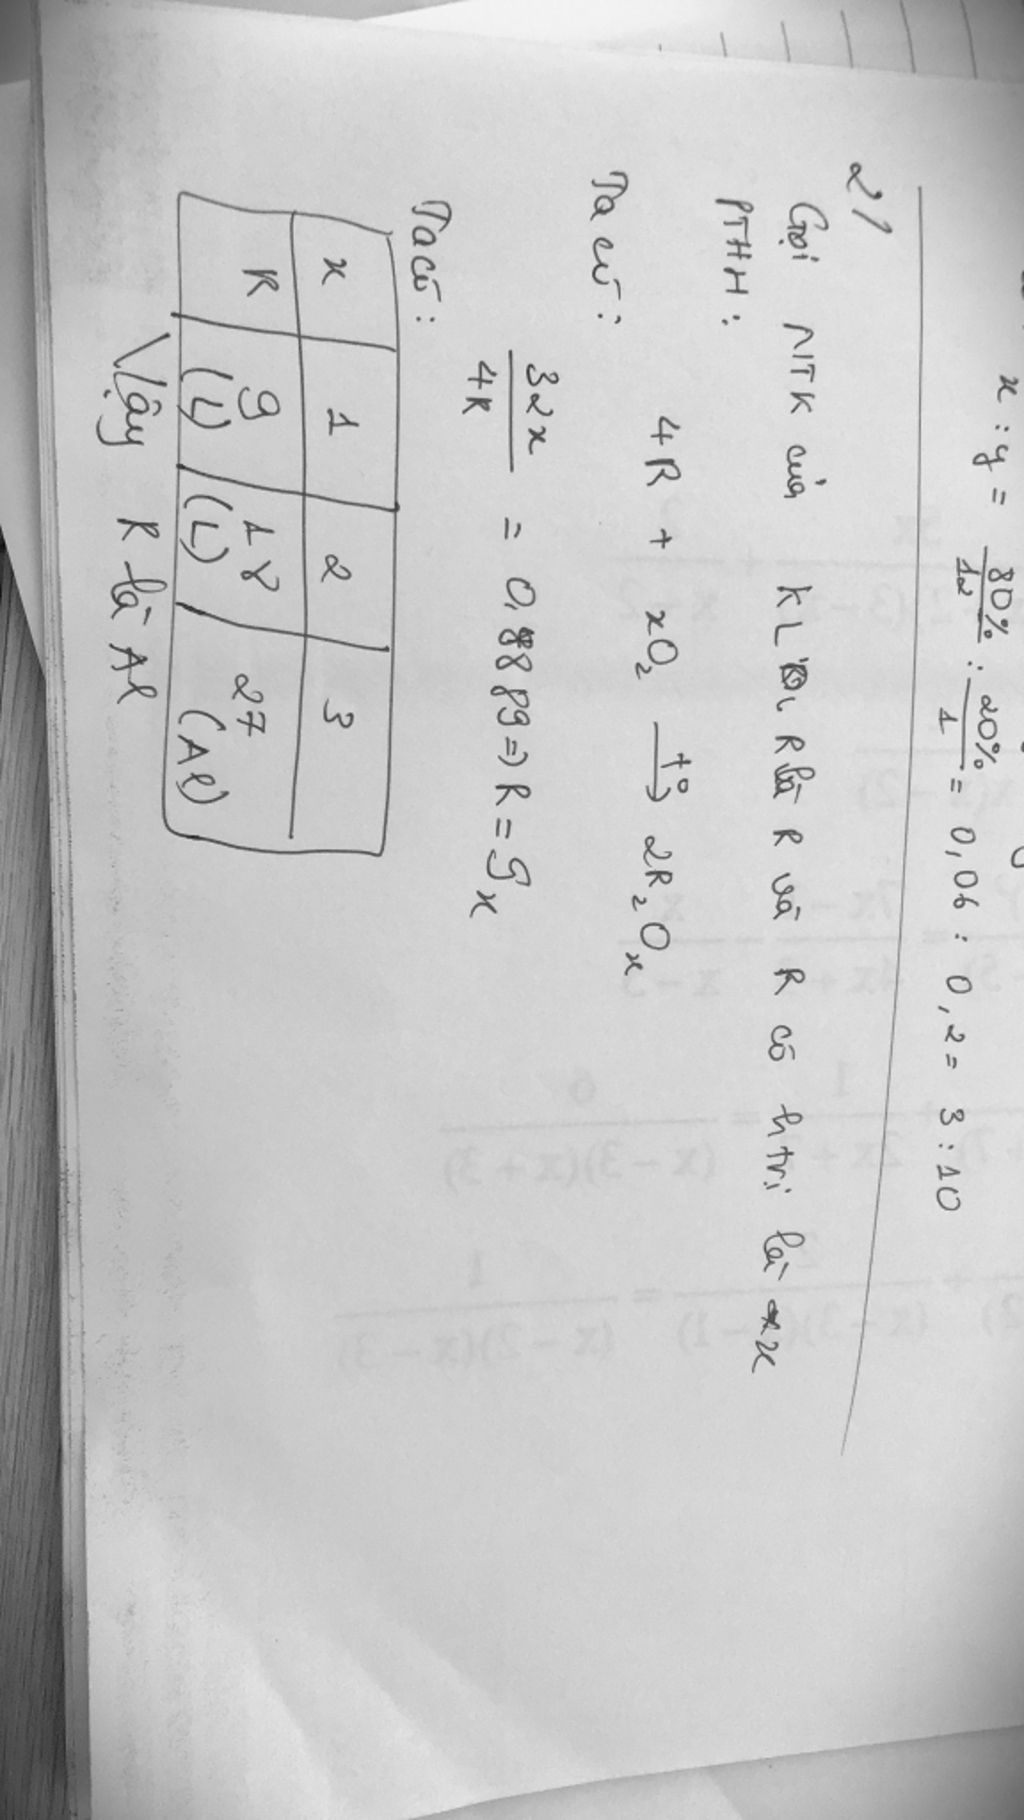 x : y = 80%/12 : 20%/1 = 0,06 : 0,2 = 3 : 10
2/
Gọi NTK của KL R là R và R có htrị là x
PTHH :
4R + xO₂ —t°→ 2R₂Oₓ
Ta có :
32x/4R = 0,8889 => R = 9x
Ta có :
x 1 2 3
R 9 (L) 18 (L) 27 (Al)
Vậy R là Al